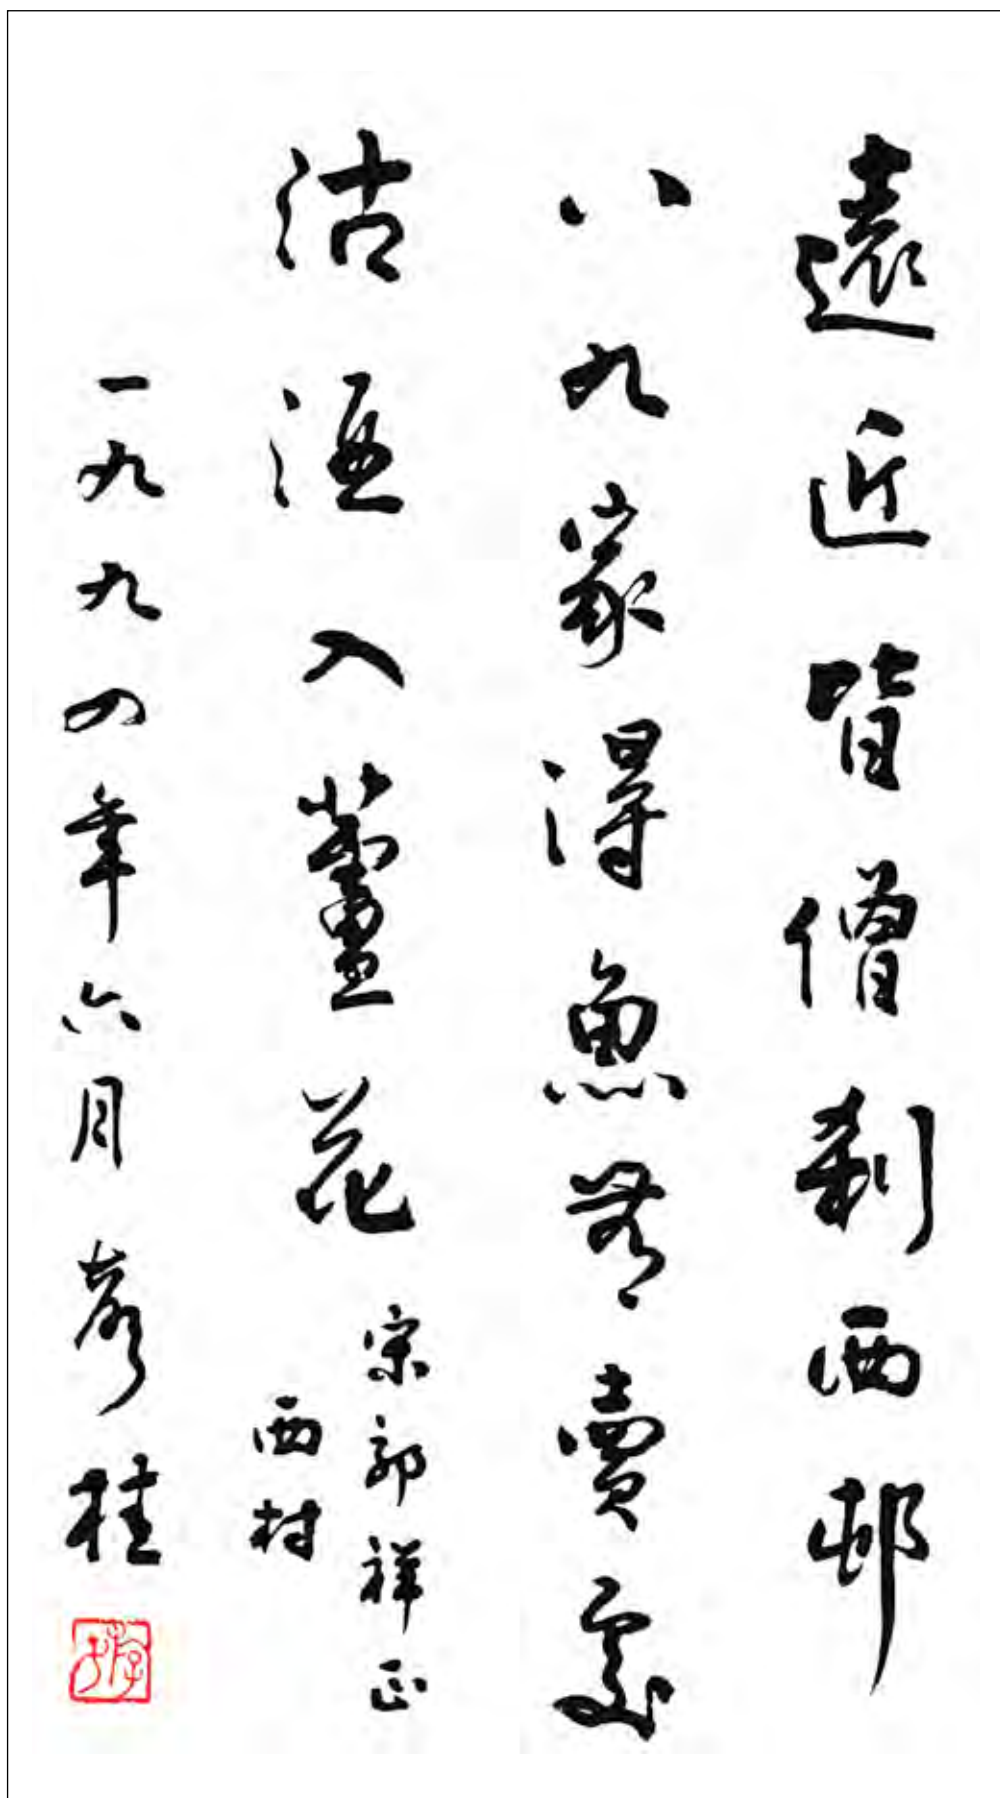 遠近皆僧刹西邨
八九家得魚無賣處
沽酒入蘆花
宋郭祥正
西村
一九九四年六月
桂